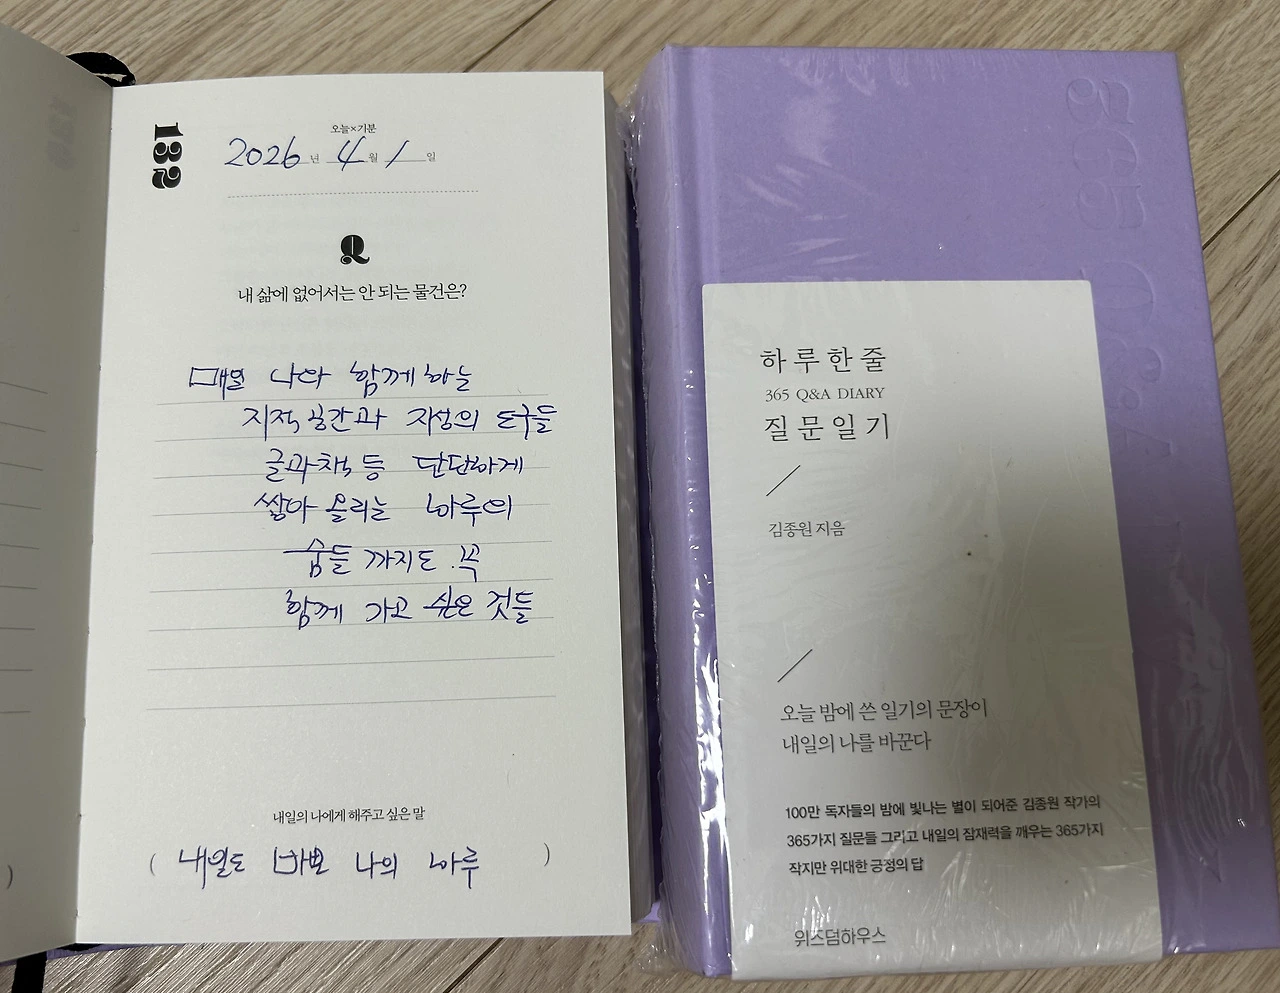 132
오늘×기분
2026년 4월 1일
Q
내 삶에 없어서는 안 되는 물건은?
매일 나와 함께하는
지적 공간과 지성의 도구들
글과 책 등 단단하게
쌓아 올리는 하루의
숨들 까지도 꼭
함께 가고 싶은 것들
내일의 나에게 해주고 싶은 말
( 내일도 바로 나의 하루 )
365 Q&A
하루 한 줄
365 Q&A DIARY
질문일기
김종원 지음
오늘 밤에 쓴 일기의 문장이
내일의 나를 바꾼다
100만 독자들의 밤에 빛나는 별이 되어준 김종원 작가의
365가지 질문들 그리고 내일의 잠재력을 깨우는 365가지
작지만 위대한 긍정의 답
위즈덤하우스